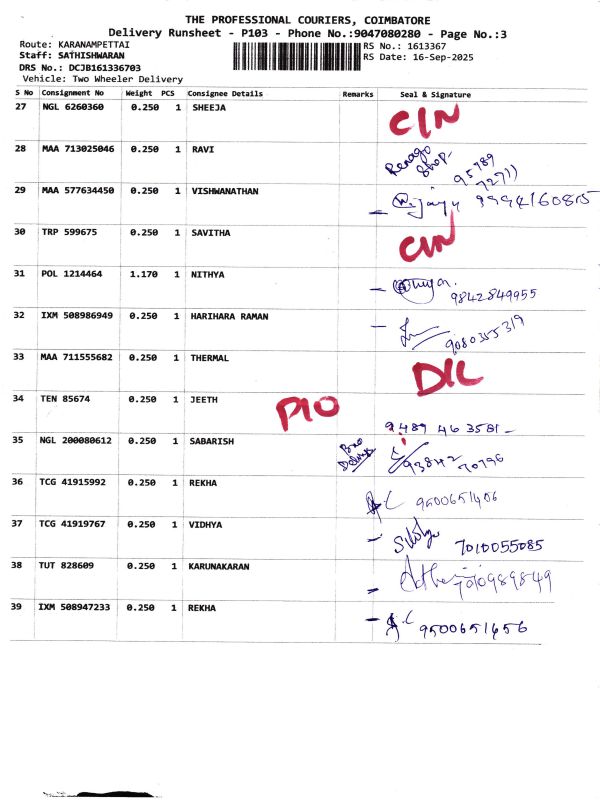 THE PROFESSIONAL COURIERS, COIMBATORE
Delivery Runsheet - P103 - Phone No.:9047080280 - Page No.:3
Route: KARANAMPETTAI
RS No.: 1613367
Staff: SATHISHWARAN
RS Date: 16-Sep-2025
DRS No.: DCJB161336703
Vehicle: Two Wheeler Delivery
S No Consignment No Weight PCS Consignee Details Remarks Seal & Signature
27 NGL 6260360 0.250 1 SHEEJA
28 MAA 713025046 0.250 1 RAVI
Shop.
95789
29 MAA 577634450 0.250 1 VISHWANATHAN
30 TRP 599675 0.250 1 SAVITHA
31 POL 1214464 1.170 1 NITHYA
9842849955
32 IXM 508986949 0.250 1 HARIHARA RAMAN
9080355319
33 MAA 711555682 0.250 1 THERMAL
D/L
34 TEN 85674 0.250 1 JEETH
9489 463581
35 NGL 200080612 0.250 1 SABARISH
93842
70796
36 TCG 41915992 0.250 1 REKHA
37 TCG 41919767 0.250 1 VIDHYA
7010055085
38 TUT 828609 0.250 1 KARUNAKARAN
39 IXM 508947233 0.250 1 REKHA
9500651656